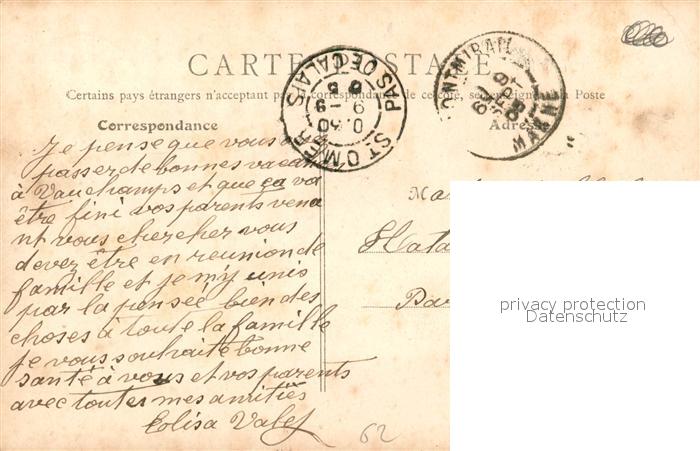 CARTE POSTALE
Certains pays étrangers n'acceptant pas la correspondance de ce côté, se renseigner à la Poste
Correspondance
Adresse
ST OMER
PAS DE CALAIS
0.30
9 - 9
MONTMIRAIL
MARNE
Je pense que vous
passer de bonnes vacan
à Vauchamps et que ça va
être fini vos parents vena
nt vous chercher vous
devez être en reunion de
famille et je m'y unis
par la pensée bien des
choses à toute la famille
je vous souhaite bonne
santé à vous et vos parents
avec toutes mes amitiés
Elisa
Ma
Hata
62
privacy protection
Datenschutz